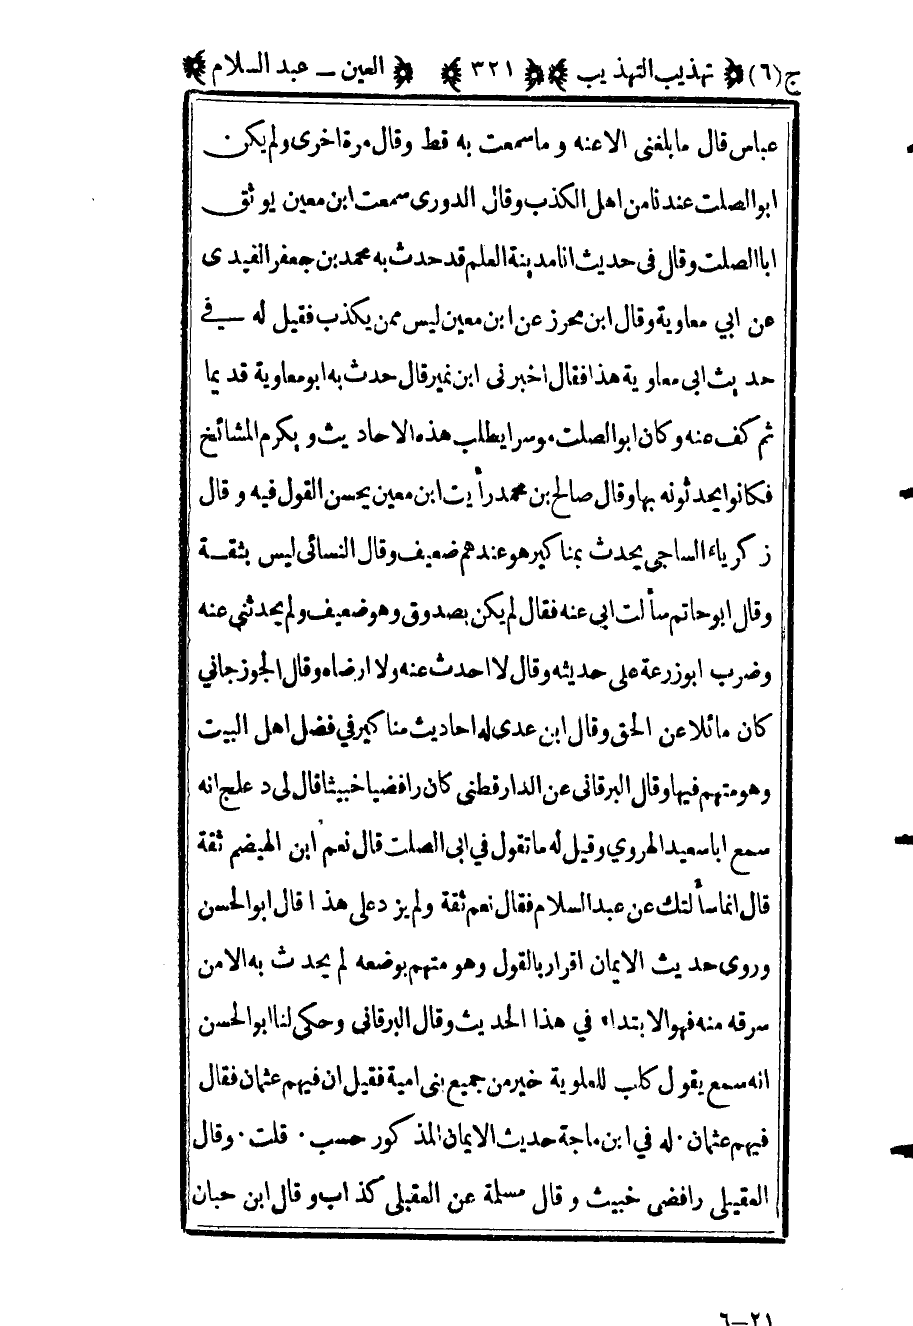 ج(٦) ﴿ تهذيب التهذيب ﴾ ﴿ ٣٢١ ﴾ ﴿ العين – عبد السلام ﴾
عباس قال ما بلغنى الا عنه و ما سمعت به قط وقال مرة اخرى ولم يكن
ابو الصلت عندنا من اهل الكذب وقال الدورى سمعت ابن معين يوثق
ابا الصلت وقال فى حديث انا مدينة العلم قد حدث به محمد بن جعفر الفيدى
عن ابي معاوية وقال ابن محرز عن ابن معين ليس ممن يكذب فقيل له في
حديث ابى معاوية هذا فقال اخبرنى ابن نمير قال حدث به ابو معاوية قديما
ثم كف عنه وكان ابو الصلت موسرا يطلب هذه الاحاديث و يكرم المشائخ
فكانوا يحدثونه بها وقال صالح بن محمد رأيت ابن معين يحسن القول فيه وقال
زكرياء الساجى يحدث بمناكير هو عندهم ضعيف وقال النسائى ليس بثقة
وقال ابو حاتم سألت ابى عنه فقال لم يكن بصدوق وهو ضعيف ولم يحدثني عنه
وضرب ابو زرعة على حديثه وقال لا احدث عنه ولا ارضاه وقال الجوزجاني
كان مائلا عن الحق وقال ابن عدى له احاديث مناكير في فضل اهل البيت
وهو متهم فيها وقال البرقانى عن الدار قطنى كان رافضيا خبيثا قال لى دعلج انه
سمع ابا سعيد الهروي وقيل له ما تقول في ابى الصلت قال نعم ابن الهيضم ثقة
قال انما سألتك عن عبد السلام فقال نعم ثقة ولم يزد على هذا قال ابو الحسن
وروى حديث الايمان اقرار بالقول وهو متهم بوضعه لم يحدث به الا من
سرقه منه فهو الابتداء في هذا الحديث وقال البرقانى وحكى لنا ابو الحسن
انه سمع يقول كلب للعلوية خير من جميع بنى امية فقيل ان فيهم عثمان فقال
فيهم عثمان ٠ له في ابن ماجة حديث الايمان المذكور حسب ٠ قلت ٠ وقال
العقيلى رافضى خبيث وقال مسلمة عن العقيلى كذاب وقال ابن حبان
٢١–٦